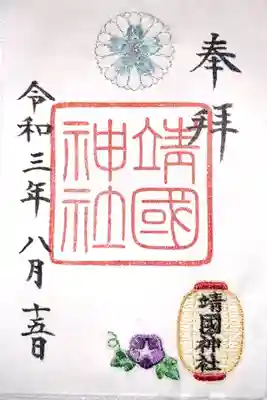 奉拝
靖國
神社
令和三年 八月 十五日
靖國神社